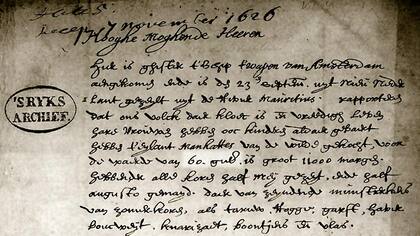 7 november 1626
Hooghe Moghende Heeren
Hier is ghister t'schip t'wapen van Amsterdam
aengekomen ende is den 23 septem. uyt Nieu Neder
lant gezeylt uyt de rivier Mauritius. rapporteren
dat ons volck daer kloec is en vreedigh leven
hare vrouwen hebben ooc kinders aldaer gebaert
hebben t'eylant Manhattes van de wilde gekocht, voor
de waerde van 60. guld. is groot 11000 morgen.
hebbende alle koren half mey gezeyt, ende half
augusto gemayd. daer van zeynden munsterkens
van zomerkoren, als tarwe, rogge, garst, haver
boucweyt, knarizaet, boontjens en vlas.
'SRYKS
ARCHIEF.